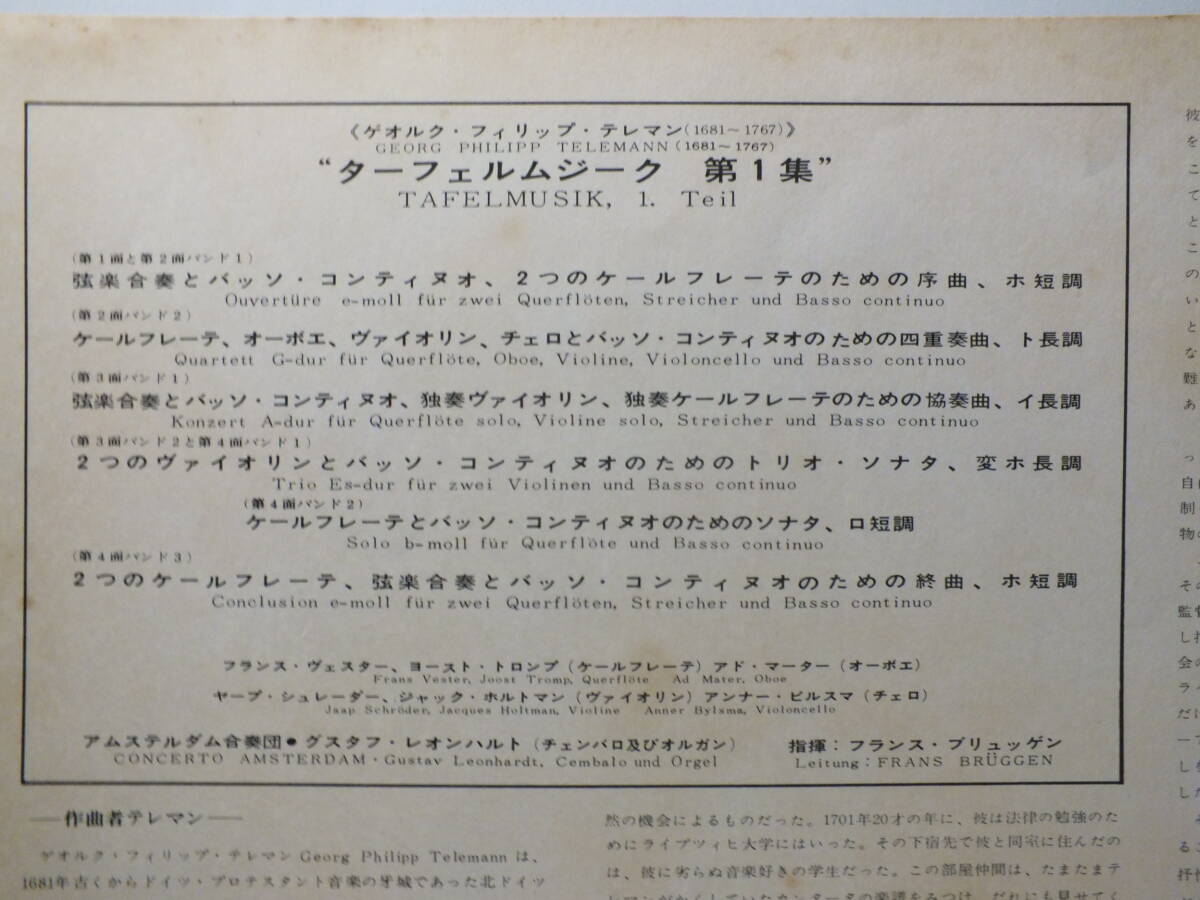 《ゲオルク・フィリップ・テレマン(1681〜1767)》
GEORG PHILIPP TELEMANN(1681〜1767)
“ターフェルムジーク 第1集”
TAFELMUSIK, 1. Teil
(第1面と第2面バンド1)
弦楽合奏とバッソ・コンティヌオ、2つのケールフレーテのための序曲、ホ短調
Ouvertüre e-moll für zwei Querflöten, Streicher und Basso continuo
(第2面バンド2)
ケールフレーテ、オーボエ、ヴァイオリン、チェロとバッソ・コンティヌオのための四重奏曲、ト長調
Quartett G-dur für Querflöte, Oboe, Violine, Violoncello und Basso continuo
(第3面バンド1)
弦楽合奏とバッソ・コンティヌオ、独奏ヴァイオリン、独奏ケールフレーテのための協奏曲、イ長調
Konzert A-dur für Querflöte solo, Violine solo, Streicher und Basso continuo
(第3面バンド2と第4面バンド1)
2つのヴァイオリンとバッソ・コンティヌオのためのトリオ・ソナタ、変ホ長調
Trio Es-dur für zwei Violinen und Basso continuo
(第4面バンド2)
ケールフレーテとバッソ・コンティヌオのためのソナタ、ロ短調
Solo b-moll für Querflöte und Basso continuo
(第4面バンド3)
2つのケールフレーテ、弦楽合奏とバッソ・コンティヌオのための終曲、ホ短調
Conclusion e-moll für zwei Querflöten, Streicher und Basso continuo
フランス・ヴェスター、ヨースト・トロンプ(ケールフレーテ)アド・マーター(オーボエ)
Frans Vester, Joost Tromp, Querflöte Ad Mater, Oboe
ヤープ・シュレーダー、ジャック・ホルトマン(ヴァイオリン)アンナー・ビルスマ(チェロ)
Jaap Schröder, Jacques Holtman, Violine Anner Bylsma, Violoncello
アムステルダム合奏団●グスタフ・レオンハルト(チェンバロ及びオルガン) 指揮:フランス・ブリュッゲン
CONCERTO AMSTERDAM・Gustav Leonhardt, Cembalo und Orgel Leitung:FRANS BRÜGGEN
—作曲者テレマン—
ゲオルク・フィリップ・テレマン Georg Philipp Telemann は、
1681年古くからドイツ・プロテスタント音楽の牙城であった北ドイツ
然の機会によるものだった。1701年20才の年に、彼は法律の勉強のた
めにライプツィヒ大学にはいった。その下宿先で彼と同室に住んだの
は、彼に劣らぬ音楽好きの学生だった。この部屋仲間は、たまたまテ
レマンがかくしていたカンタータの楽譜をみつけ、だれにも見せてく
彼
を
こ
て
と
こ
の
い
と
な
難
あ
っ
自由
制
物の
その
監督
し指
会の
ラ
だけ
一
し
した
そ
るこ
抒情